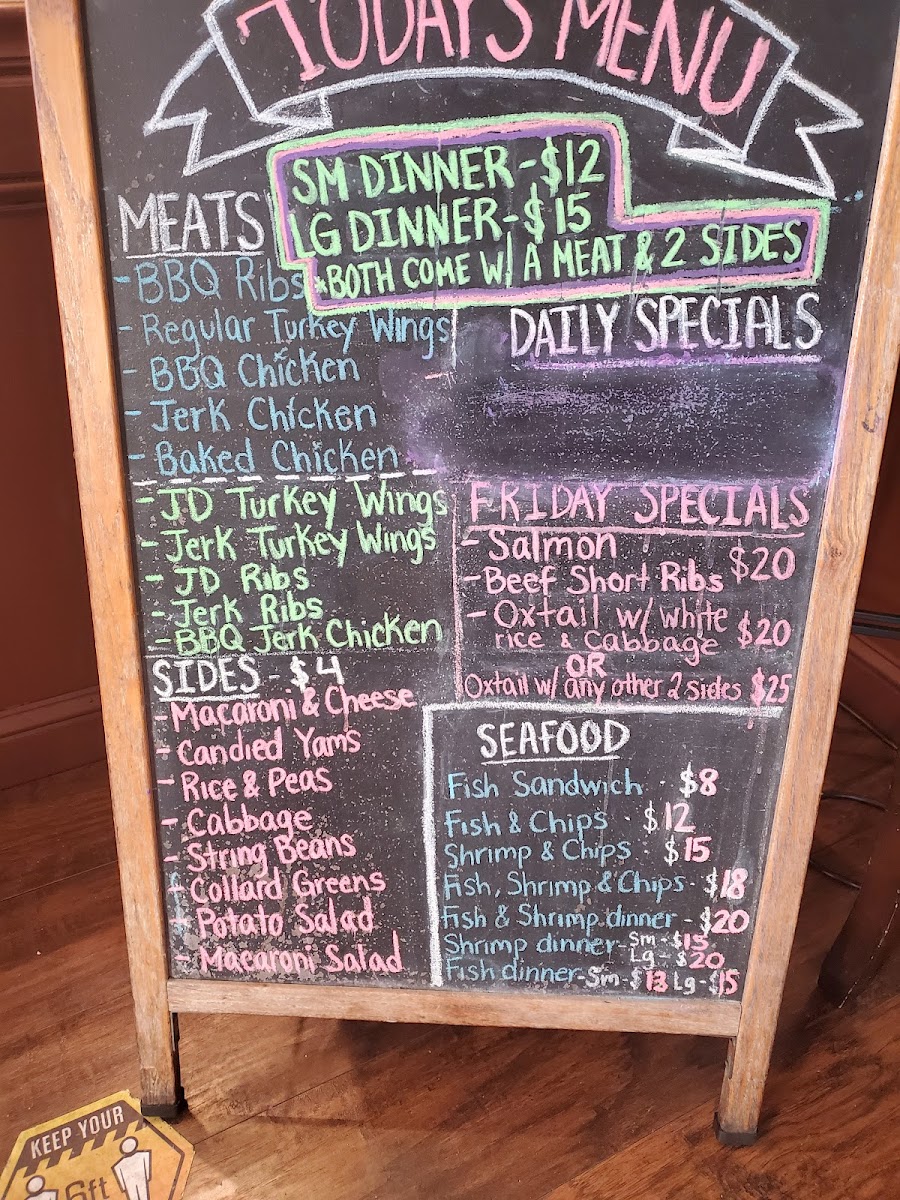 TODAY'S MENU
SM DINNER - $12
LG DINNER - $15
*BOTH COME W/ A MEAT & 2 SIDES
MEATS
- BBQ Ribs
- Regular Turkey Wings
- BBQ Chicken
- Jerk Chicken
- Baked Chicken
- JD Turkey Wings
- Jerk Turkey Wings
- JD Ribs
- Jerk Ribs
- BBQ Jerk Chicken
SIDES - $4
- Macaroni & Cheese
- Candied Yams
- Rice & Peas
- Cabbage
- String Beans
- Collard Greens
- Potato Salad
- Macaroni Salad
DAILY SPECIALS
FRIDAY SPECIALS
- Salmon
- Beef Short Ribs $20
- Oxtail w/ white
rice & Cabbage $20
OR
Oxtail w/ any other 2 sides $25
SEAFOOD
Fish Sandwich - $8
Fish & Chips - $12
Shrimp & Chips - $15
Fish, Shrimp & Chips - $18
Fish & Shrimp dinner - $20
Shrimp dinner - Sm - $15
Lg - $20
Fish dinner - Sm - $13 Lg - $15
KEEP YOUR
6ft